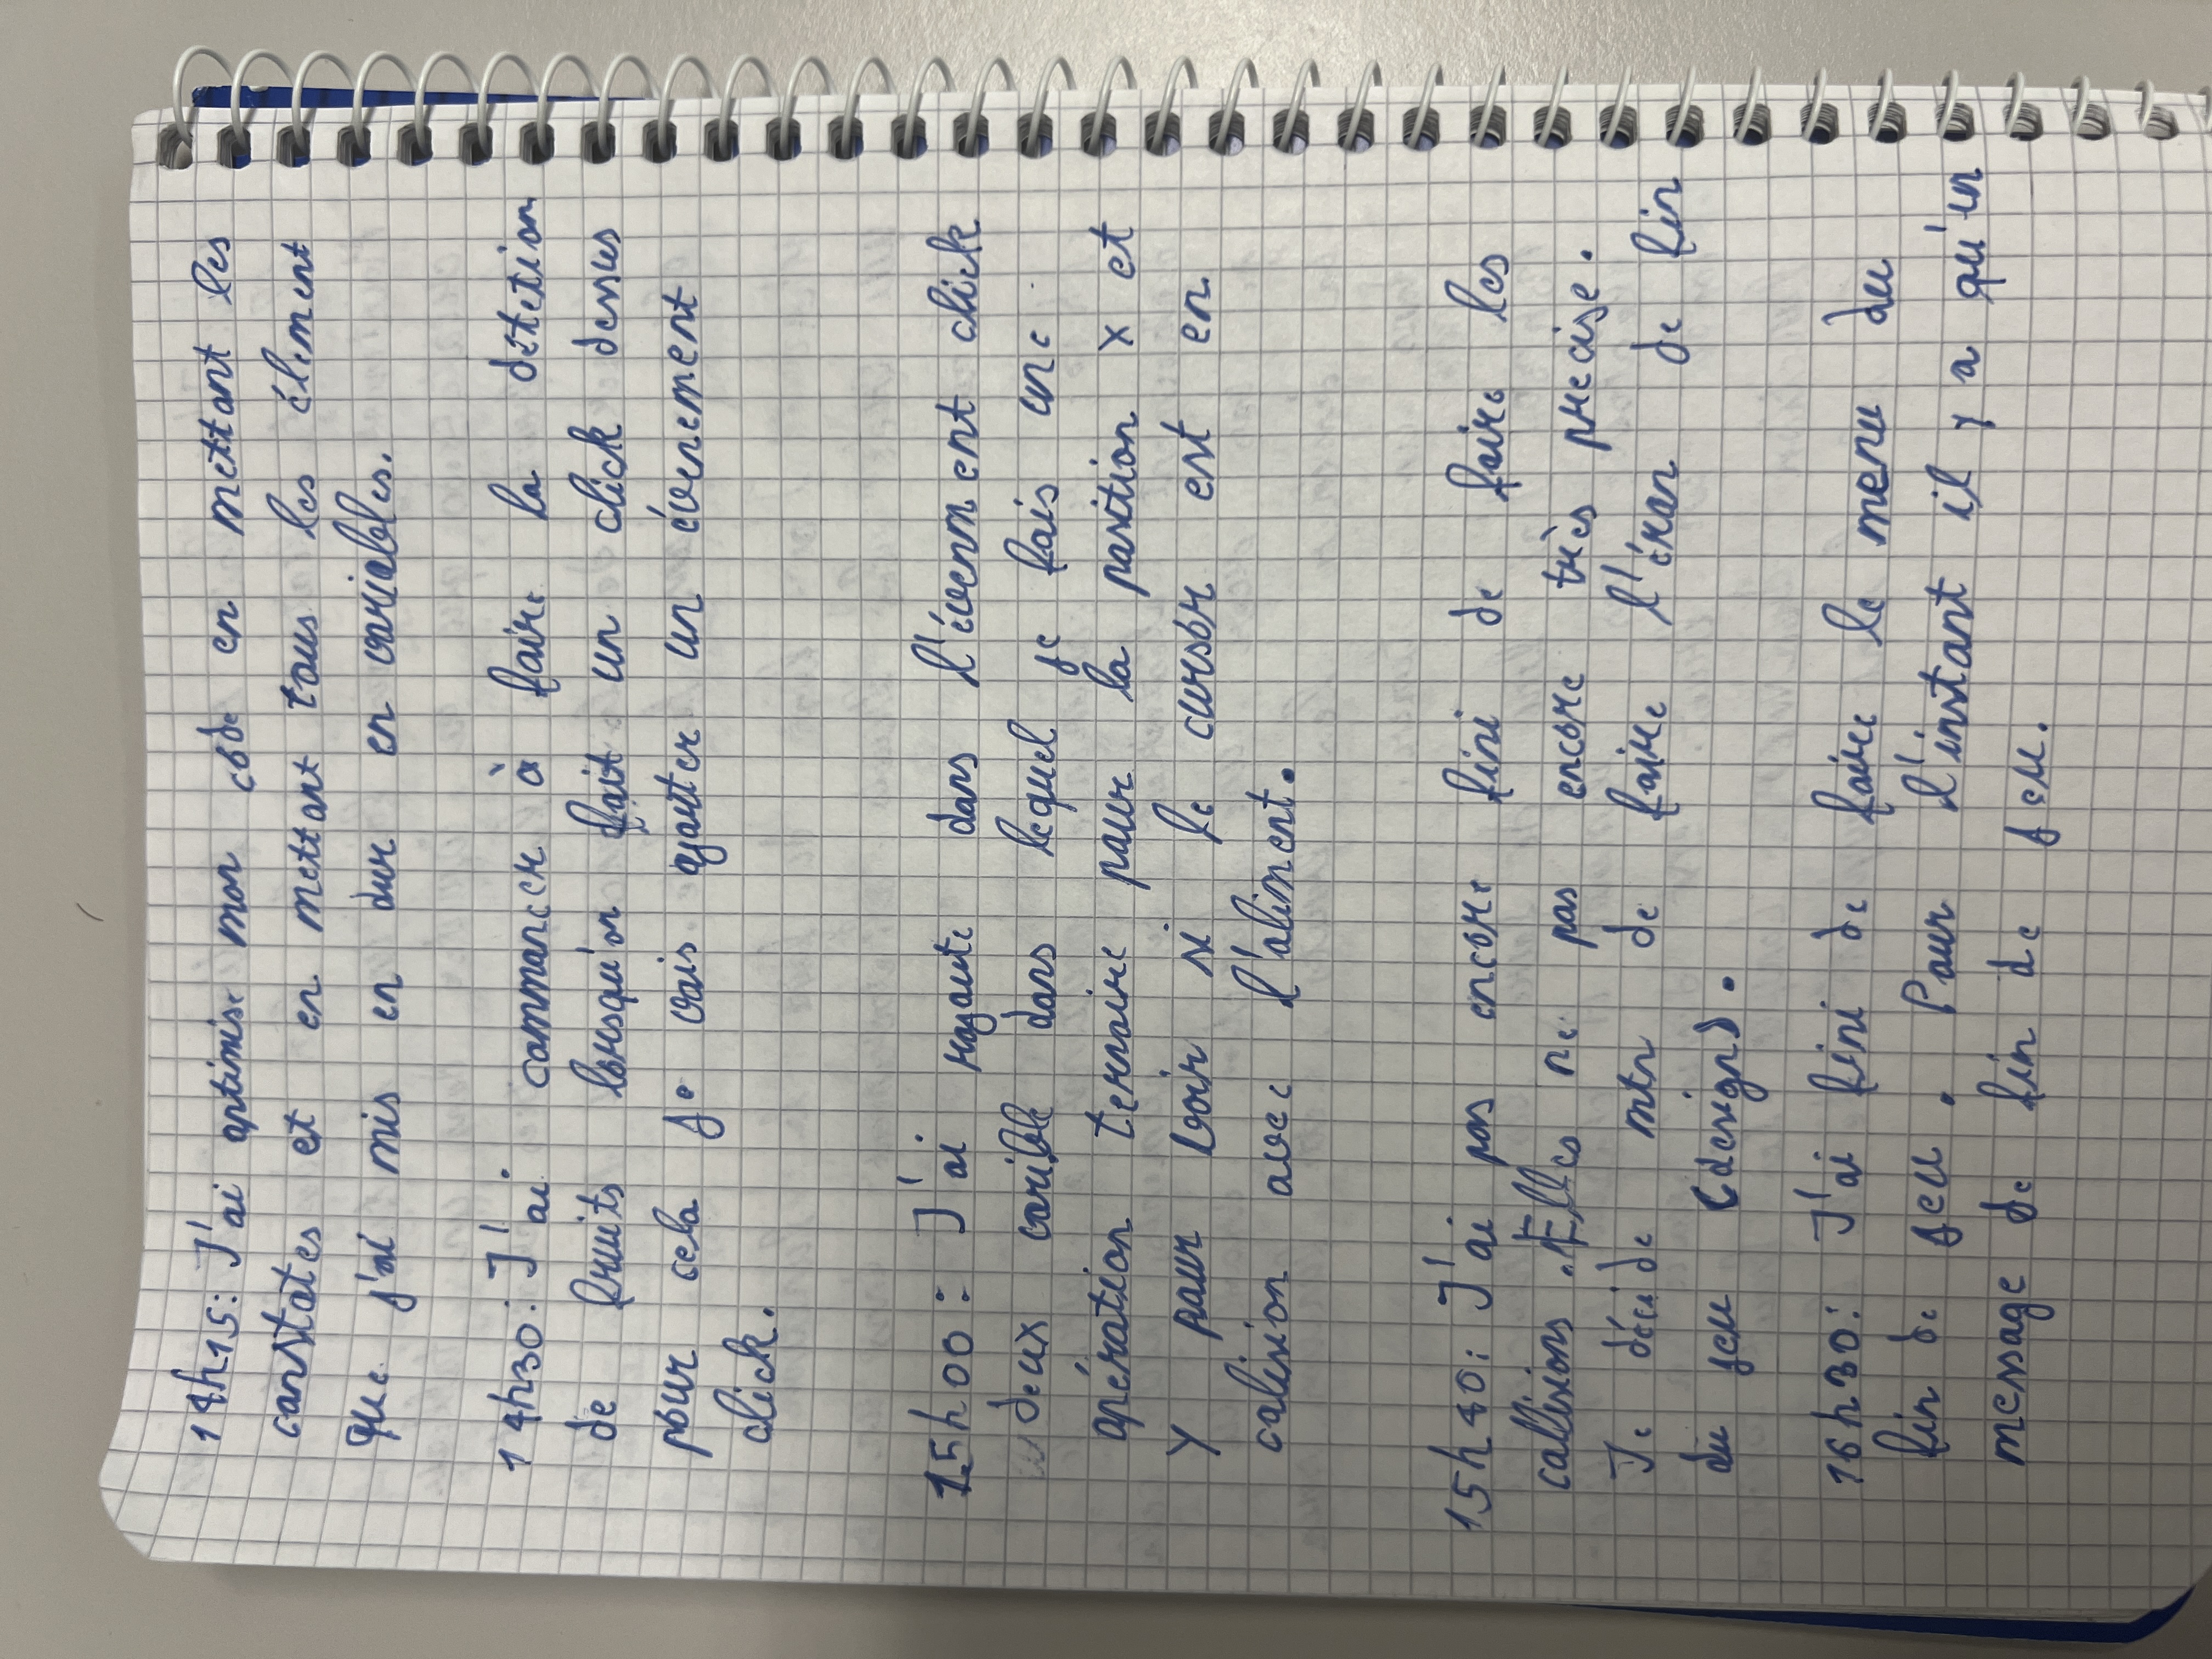 14h15: J'ai optimise mon code en mettant les
constates et en mettant tous les élement
que j'ai mis en dur en variables.
14h30: J'ai commancer à faire la détetion
de fruits lorsqu'on fait un click dessus
pour cela je vais ajouter un évenement
click.
15h00: J'ai rajoute dans l'évenment click
deux varible dans lequel je fais une
opération ternaire pour la position x et
y pour voir si le cursor est en
colision avec l'aliment.
15h40: J'ai pas encore fini de faire les
collisions. Elles ne pas encore très precise.
Je décide mtn de faire l'éran de fin
du jeu (design).
16h30: J'ai fini de faire le menu du
fin de jeu. Pour l'instant il y a qu'un
message de fin de jeu.